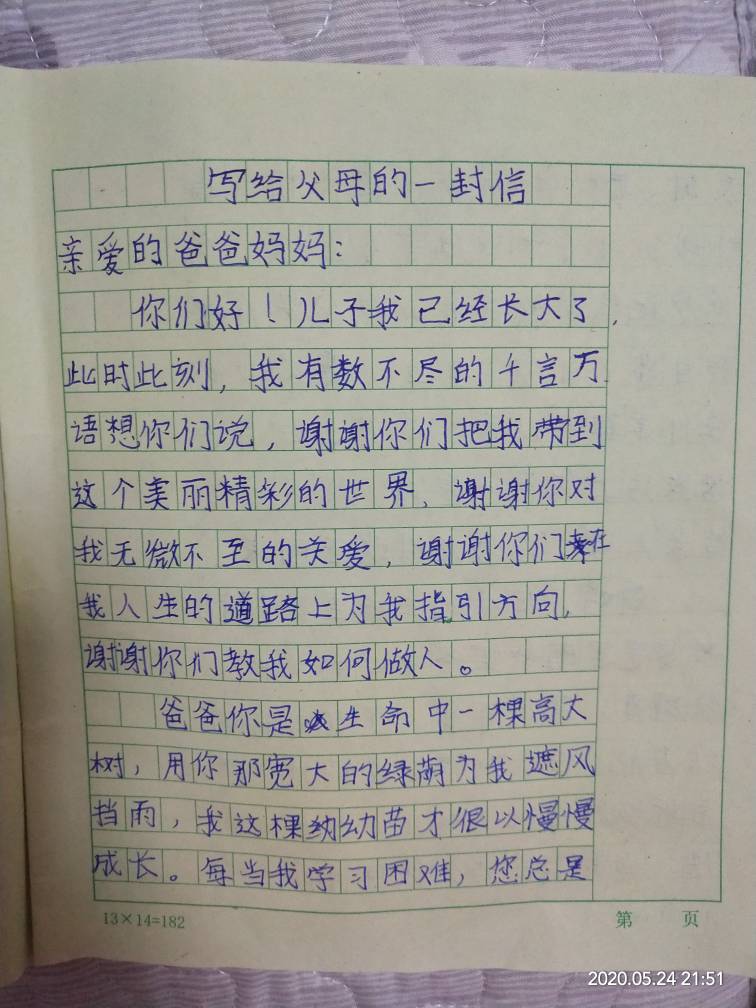 写给父母的一封信
亲爱的爸爸妈妈：
你们好！儿子我已经长大了，
此时此刻，我有数不尽的千言万
语想你们说，谢谢你们把我带到
这个美丽精彩的世界、谢谢你对
我无微不至的关爱，谢谢你们在
我人生的道路上为我指引方向，
谢谢你们教我如何做人。
爸爸你是生命中一棵高大
树，用你那宽大的绿荫为我遮风
挡雨，我这棵幼苗才很以慢慢
成长。每当我学习困难，您总是
13×14=182
第 页
2020.05.24 21:51